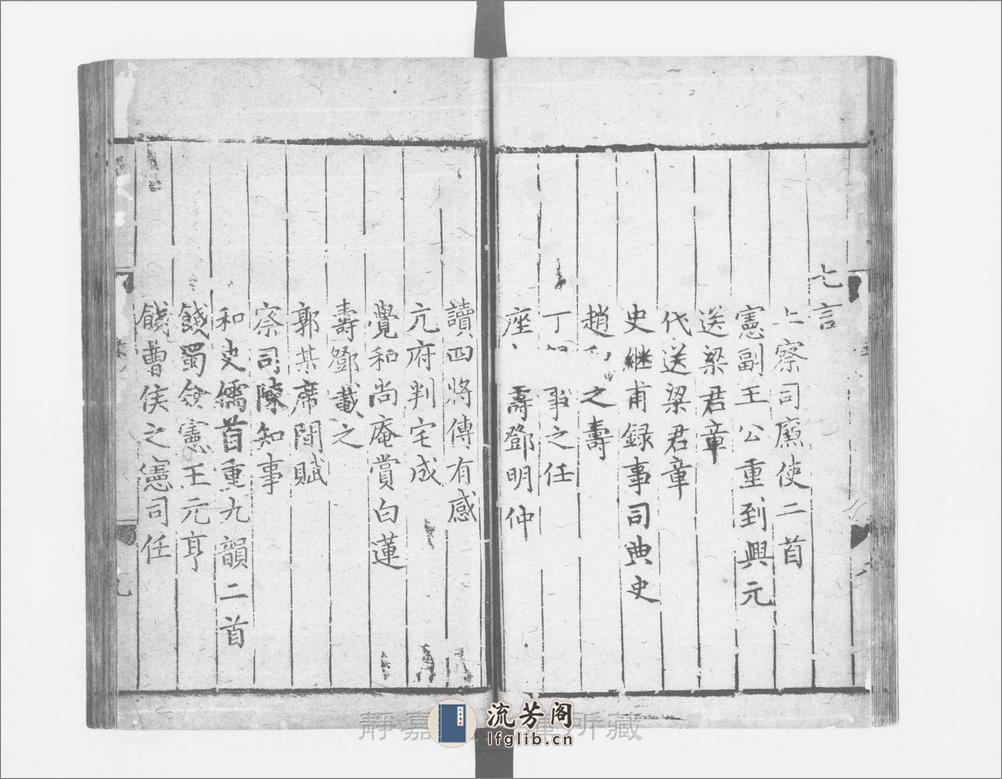 七言
上察司廉使二首
憲副王公重到興元
送梁君章
代送梁君章
史継甫録事司典史
趙 之壽
丁 事之任
座 壽鄧明仲
讀四將傳有感
亢府判宅成
覺和尚庵賞白蓮
壽鄧載之
郭某席間賦
察司陳知事
和史儒首重九韻二首
餞蜀僉憲王元亨
餞曹侯之憲司任
流芳阁
lfglib.cn
静嘉 所藏